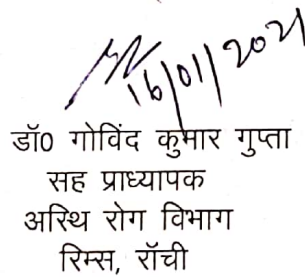 16/01/2021
डॉ0 गोविंद कुमार गुप्ता
सह प्राध्यापक
अस्थि रोग विभाग
रिम्स, राँची